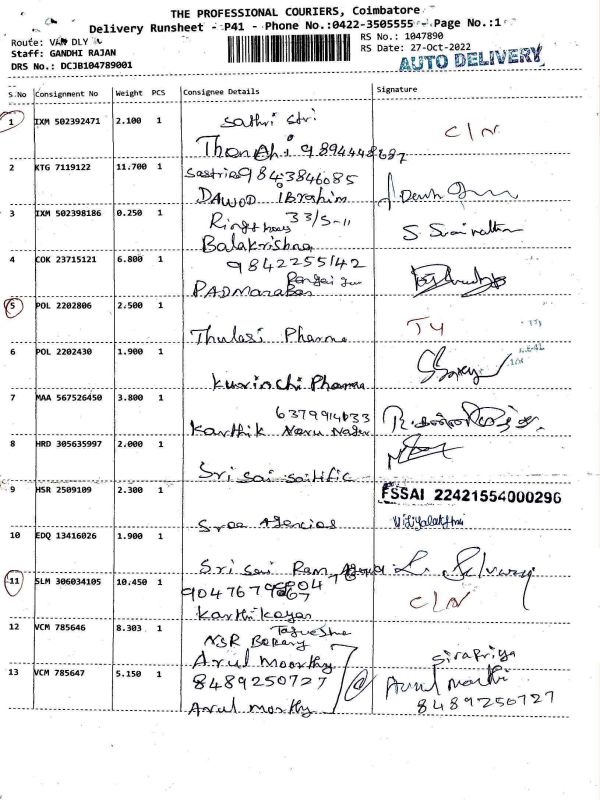 THE PROFESSIONAL COURIERS, Coimbatore
Delivery Runsheet - P41 - Phone No.:0422-3505555 - Page No.:1
Route: VAN DLY
RS No.: 1047890
Staff: GANDHI RAJAN
RS Date: 27-Oct-2022
DRS No.: DCJB104789001
AUTO DELIVERY
S.No Consignment No Weight PCS Consignee Details Signature
1 IXM 502392471 2.100 1 Sathri Stri
CLN
9894448687
2 KTG 7119122 11.700 1 9843846085
DAWOD ibrahim
3 IXM 502398186 0.250 1 33/5-11
Balakrishna
4 COK 23715121 6.800 1 9842255142
5 POL 2202806 2.500 1
Thulasi Pharma
6 POL 2202430 1.900 1
Kurinchi Pharma
7 MAA 567526450 3.800 1 6379914633
Karthik
8 HRD 305635997 2.000 1
Sri sai
9 HSR 2509109 2.300 1
FSSAI 22421554000296
Sree Agencies Vijiyalakshmi
10 EDQ 13416026 1.900 1
Sri Sai Ram
11 SLM 306034105 10.450 1
CLN
Karthikayan
12 VCM 785646 8.303 1
NSR Bakery
Arul Moorthy
13 VCM 785647 5.150 1 8489250727
Arul Morthy
8489250727